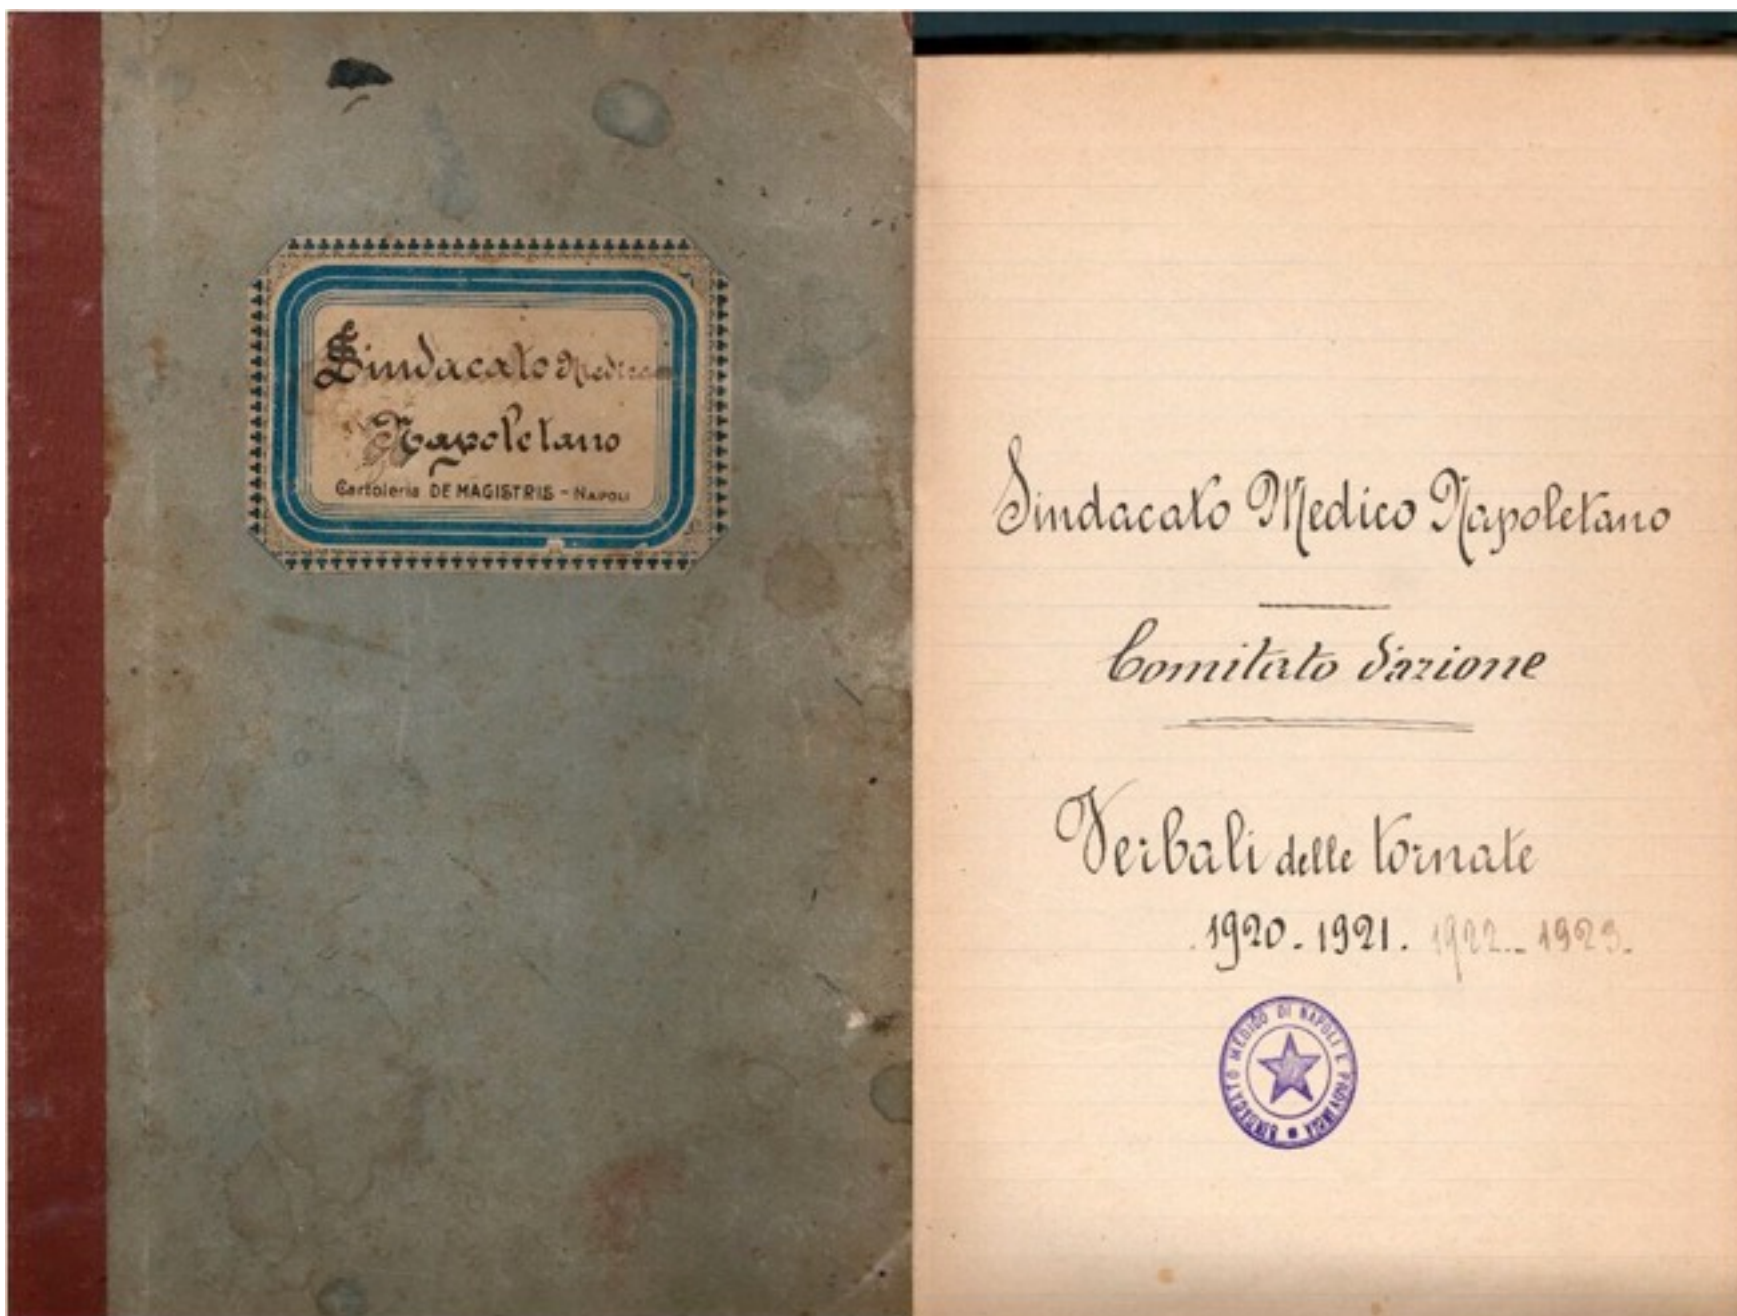 Sindacato Medico
Napoletano
Cartoleria DE MAGISTRIS - NAPOLI
Sindacato Medico Napoletano
Comitato d'azione
Verbali delle tornate
1920. 1921. 1922. 1923.
SINDACATO MEDICO DI NAPOLI E PROVINCIA